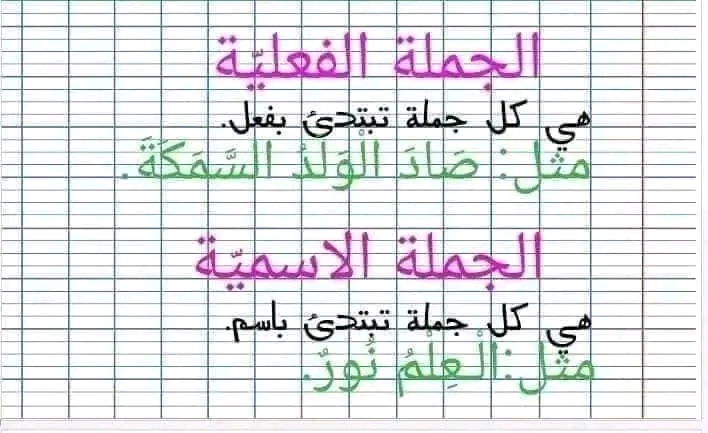 الجملة الفعليّة
هي كل جملة تبتدئ بفعل.
مثل: صَادَ الْوَلَدُ السَّمَكَةَ.
الجملة الاسميّة
هي كل جملة تبتدئ باسم.
مثل:الْعِلْمُ نُورٌ.